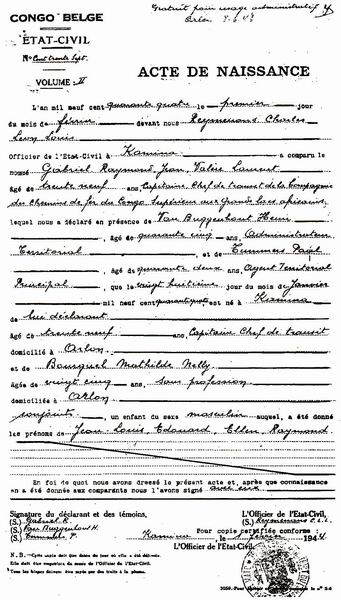 Gratuit pour usage administratif
CONGO BELGE
Arlon
ÉTAT-CIVIL
No Cent trente Sept.
VOLUME: II
ACTE DE NAISSANCE
L'an mil neuf cent quarante quatre le premier jour
du mois de février devant nous Reymenans Charles
Léon Louis
Officier de l'Etat-Civil à Kamina a comparu le
nommé Gabriel Raymond, Jean, Valère Laurent
âgé de trente neuf ans, Capitaine Chef de transit de la Compagnie
des Chemins de fer du Congo Supérieur aux Grands Lacs africains,
lequel nous a déclaré en présence de Van Buggenhout Henri
, âgé de quarante cinq ans, Administrateur
Territorial et de Timmers
, âgé de quarante deux ans, Agent Territorial
Principal, que le vingt huitième jour du mois de Janvier
mil neuf cent quarante quatre est né à Kamina
de lui déclarant
âgé trente neuf ans, Capitaine Chef de transit
domicilié à Arlon
et de Bourguel Mathilde Nelly
âgée de vingt cinq ans, sans profession
domiciliée à Arlon
conjoints, un enfant du sexe masculin auquel, a été donné
les prénoms de Jean-Louis, Edouard, Ellen, Raymond
En foi de quoi nous avons dressé le présent acte et, après que connaissance
en a été donnée aux comparants nous l'avons signé avec eux
Signature du déclarant et des témoins, L'Officier de l'Etat-Civil,
(S.) Gabriel R. (S.) Reymenans C.L.L.
(S.) Van Buggenhout H. Pour copie certifiée conforme,
(S.) Kamina le 1 février 1944
L'Officier de l'Etat-Civil,
N.B. —Cette copie doit être datée du jour où elle a été délivrée.
Elle doit être empreinte du sceau de l'Officier de l'Etat-Civil.
Tous les blancs doivent être rayés par des traits à la plume.